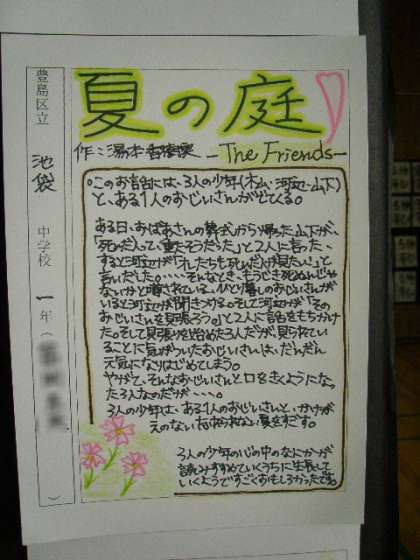 夏の庭
作:湯本香樹実
-The Friends-
○このお話には、3人の少年(木山、河辺、山下)
と、ある1人のおじいさんがでてくる。
ある日、おばあさんの葬式から帰った山下が、
「死んだ人って、重たそうだった」と2人に言った、
すると河辺が「オレたちも死んだ人が見たい!」と
言いだした。・・・そんなとき、もうじき死ぬんじゃ
ないかと噂されている、ひとり暮しのおじいさんが
いると河辺が聞きつける。そして河辺が「その
おじいさんを見張ろう。」と2人に話をもちかけ
た。そして見張りを始めた3人だが、見られてい
ることに気がついたおじいさんは、だんだん
元気になりはじめてしまう。
やがて、そんなおじいさんと口をきくようになっ
た3人なのだが・・・。
3人の少年は、ある1人のおじいさんと、かけが
えのない 夏をすごす。
3人の少年の心の中のなにかが
読みすすめていくうちに生長して
いくようですごくおもしろかったです
豊島区立 池袋 中学校 一年( )